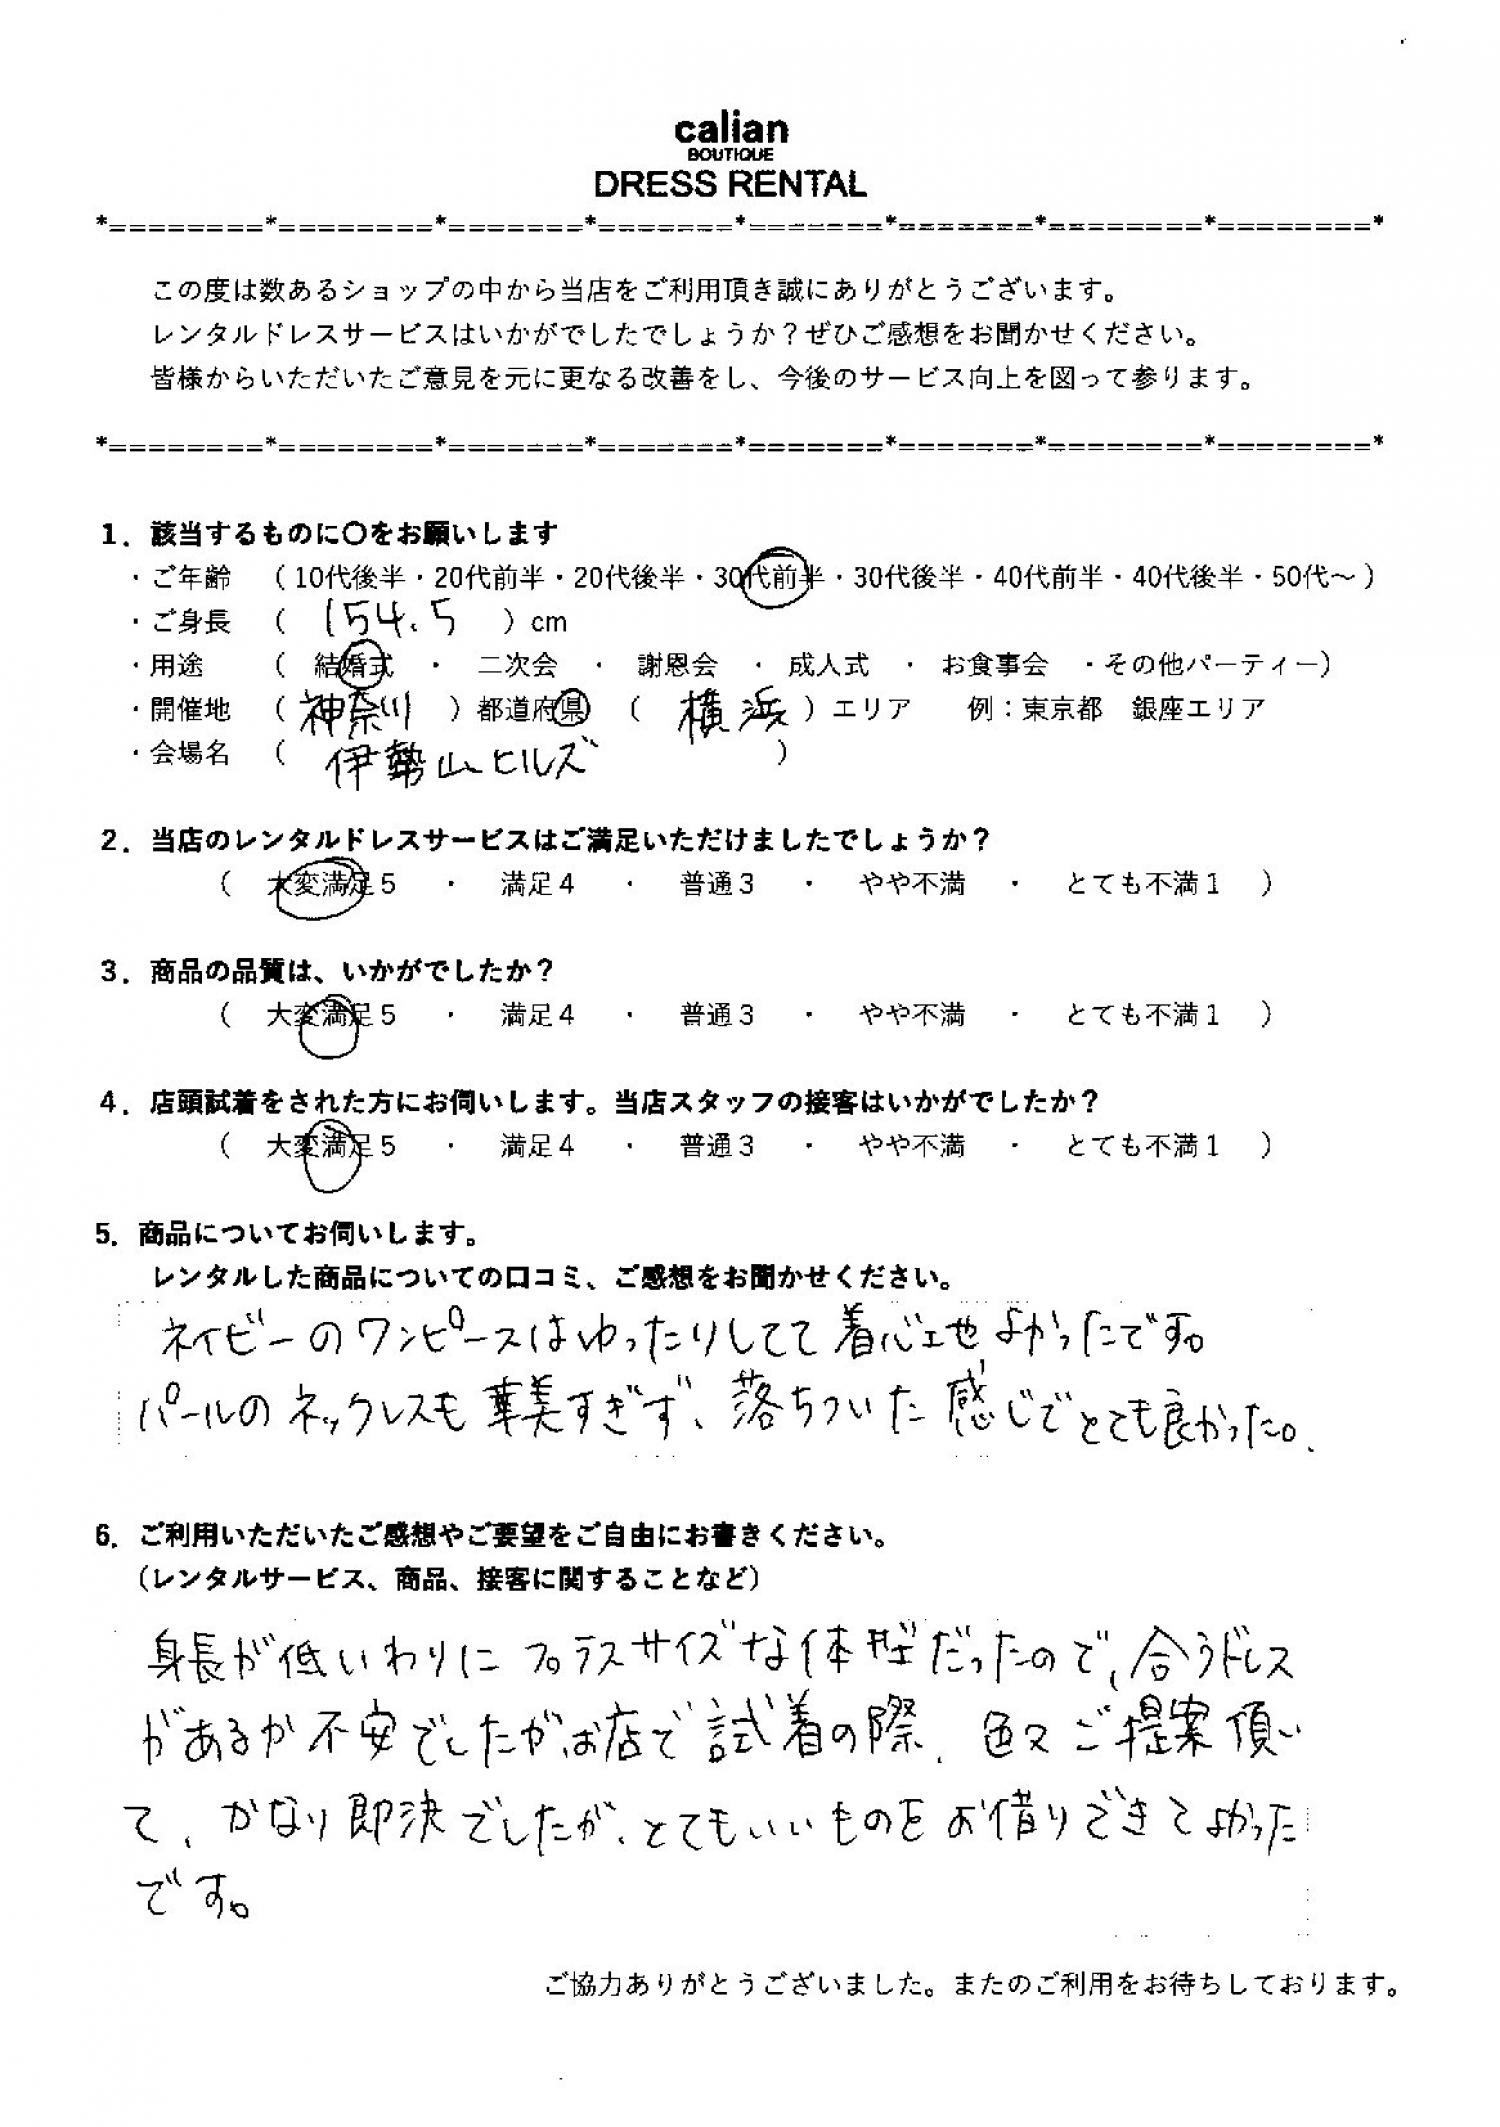 calian
BOUTIQUE
DRESS RENTAL
*========*========*=======*=======*=======*=======*========*========*
この度は数あるショップの中から当店をご利用頂き誠にありがとうございます。
レンタルドレスサービスはいかがでしたでしょうか？ぜひご感想をお聞かせください。
皆様からいただいたご意見を元に更なる改善をし、今後のサービス向上を図って参ります。
*========*========*=======*=======*=======*=======*========*========*
1．該当するものに〇をお願いします
・ご年齢 （10代後半・20代前半・20代後半・30代前半・30代後半・40代前半・40代後半・50代～）
・ご身長 （ 154.5 ）cm
・用途 （ 結婚式 ・ 二次会 ・ 謝恩会 ・ 成人式 ・ お食事会 ・その他パーティー）
・開催地 （ 神奈川 ）都道府県 （ 横浜 ）エリア 例：東京都 銀座エリア
・会場名 （ 伊勢山ヒルズ ）
2．当店のレンタルドレスサービスはご満足いただけましたでしょうか？
（ 大変満足5 ・ 満足4 ・ 普通3 ・ やや不満 ・ とても不満1 ）
3．商品の品質は、いかがでしたか？
（ 大変満足5 ・ 満足4 ・ 普通3 ・ やや不満 ・ とても不満1 ）
4．店頭試着をされた方にお伺いします。当店スタッフの接客はいかがでしたか？
（ 大変満足5 ・ 満足4 ・ 普通3 ・ やや不満 ・ とても不満1 ）
5．商品についてお伺いします。
レンタルした商品についての口コミ、ご感想をお聞かせください。
ネイビーのワンピースはゆったりしてて着心地よかったです。
パールのネックレスも華美すぎず、落ちついた感じでとても良かった。
6．ご利用いただいたご感想やご要望をご自由にお書きください。
（レンタルサービス、商品、接客に関することなど）
身長が低いわりにプラスサイズな体型だったので、合うドレス
があるか不安でしたがお店で試着の際、色々ご提案頂い
て、かなり即決でしたが、とてもいいものをお借りできてよかった
です。
ご協力ありがとうございました。またのご利用をお待ちしております。